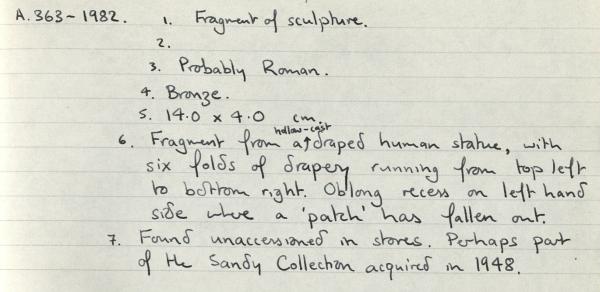 A.363-1982. 1. Fragment of sculpture.
2.
3. Probably Roman.
4. Bronze.
5. 14.0 x 4.0 cm.
6. Fragment from a ↑hollow-cast draped human statue, with
six folds of drapery running from top left
to bottom right. Oblong recess on left hand
side where a 'patch' has fallen out.
7. Found unaccessioned in stores. Perhaps part
of the Sandy Collection acquired in 1948.